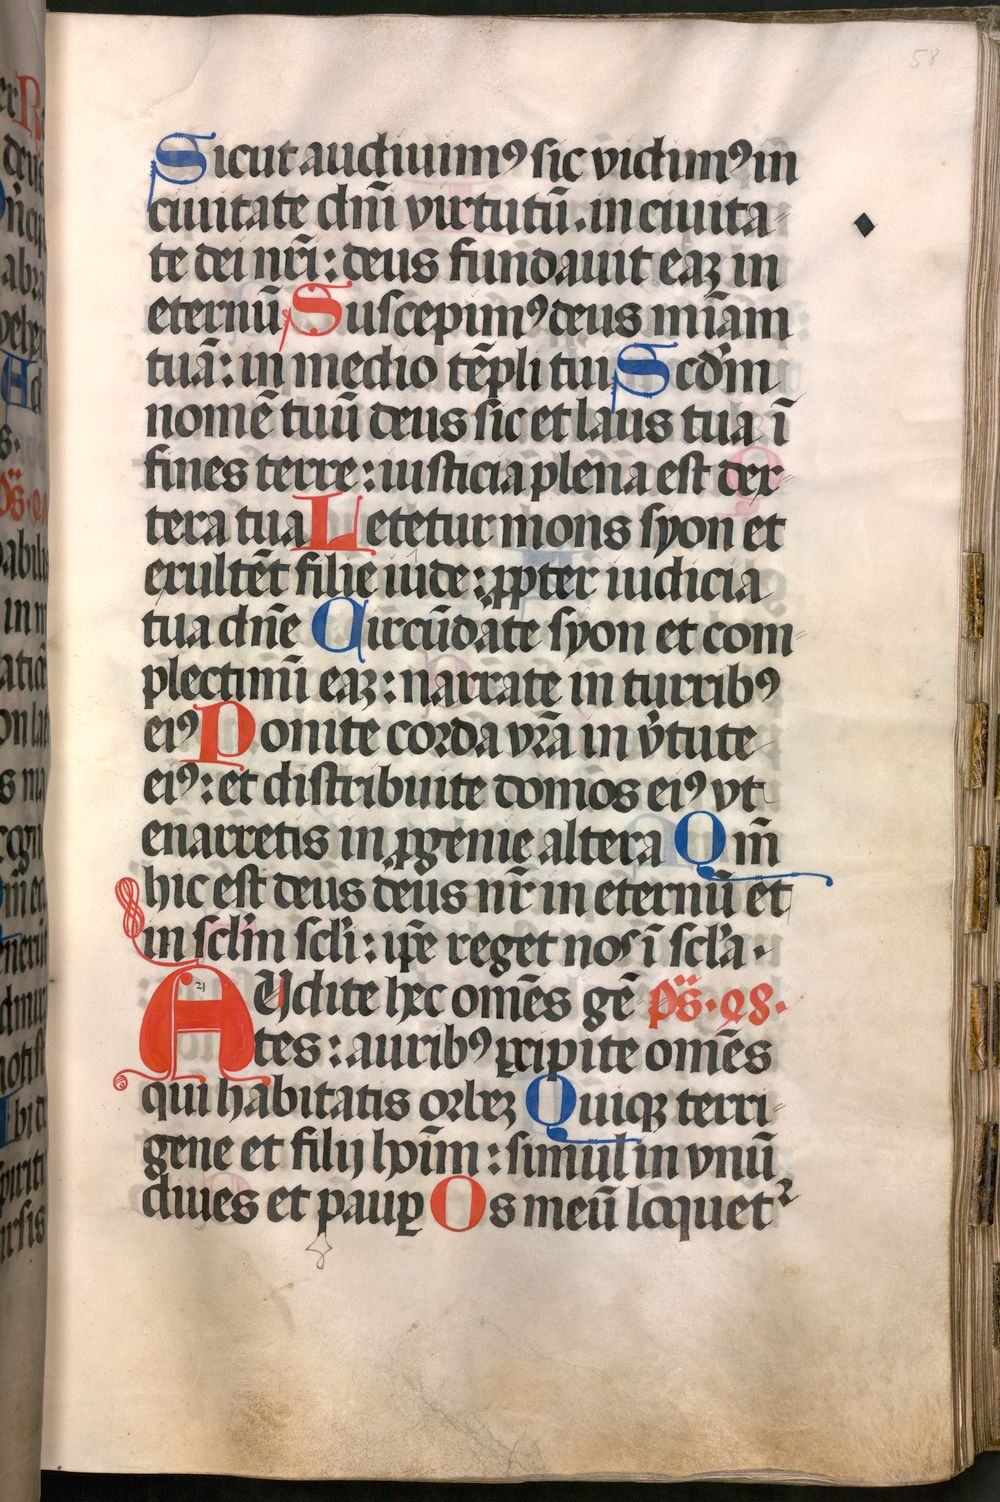 58
Sicut audiuimꝰ sic vidimꝰ in
ciuitate dñi virtutū. in ciuita⸗
te dei nr̄i : deus fundauit eaꝫ in
eternū Suscepimꝰ deus miām
tuā : in medio tēpli tui Scd̓m
nomē tuū deus sic et laus tua ī
fines terre : iusticia plena est dex⸗
tera tua Letetur mons syon et
exultēt filie iude : ꝓpter iudicia
tua dn̄e Circūdate syon et com⸗
plectimī eaꝫ : narrate in turribꝰ
eiꝰ Ponite corda vr̄a in v̓tute
eiꝰ : et distribuite domos eiꝰ vt
enarretis in ꝓgenie altera Qm̄
hic est deus deus nr̄ in eternū et
in scl̓m scl̓i : ip̄e reget nos ī scl̓a.
AUdite hec omēs gē ps. 48.
21
tes : auribꝰ ꝑcipite omēs
qui habitatis orbeꝫ Quiqꝫ terri⸗
gene et filij hoīm : simul in vnū
diues et paupꝑ Os meū loquetᷣ